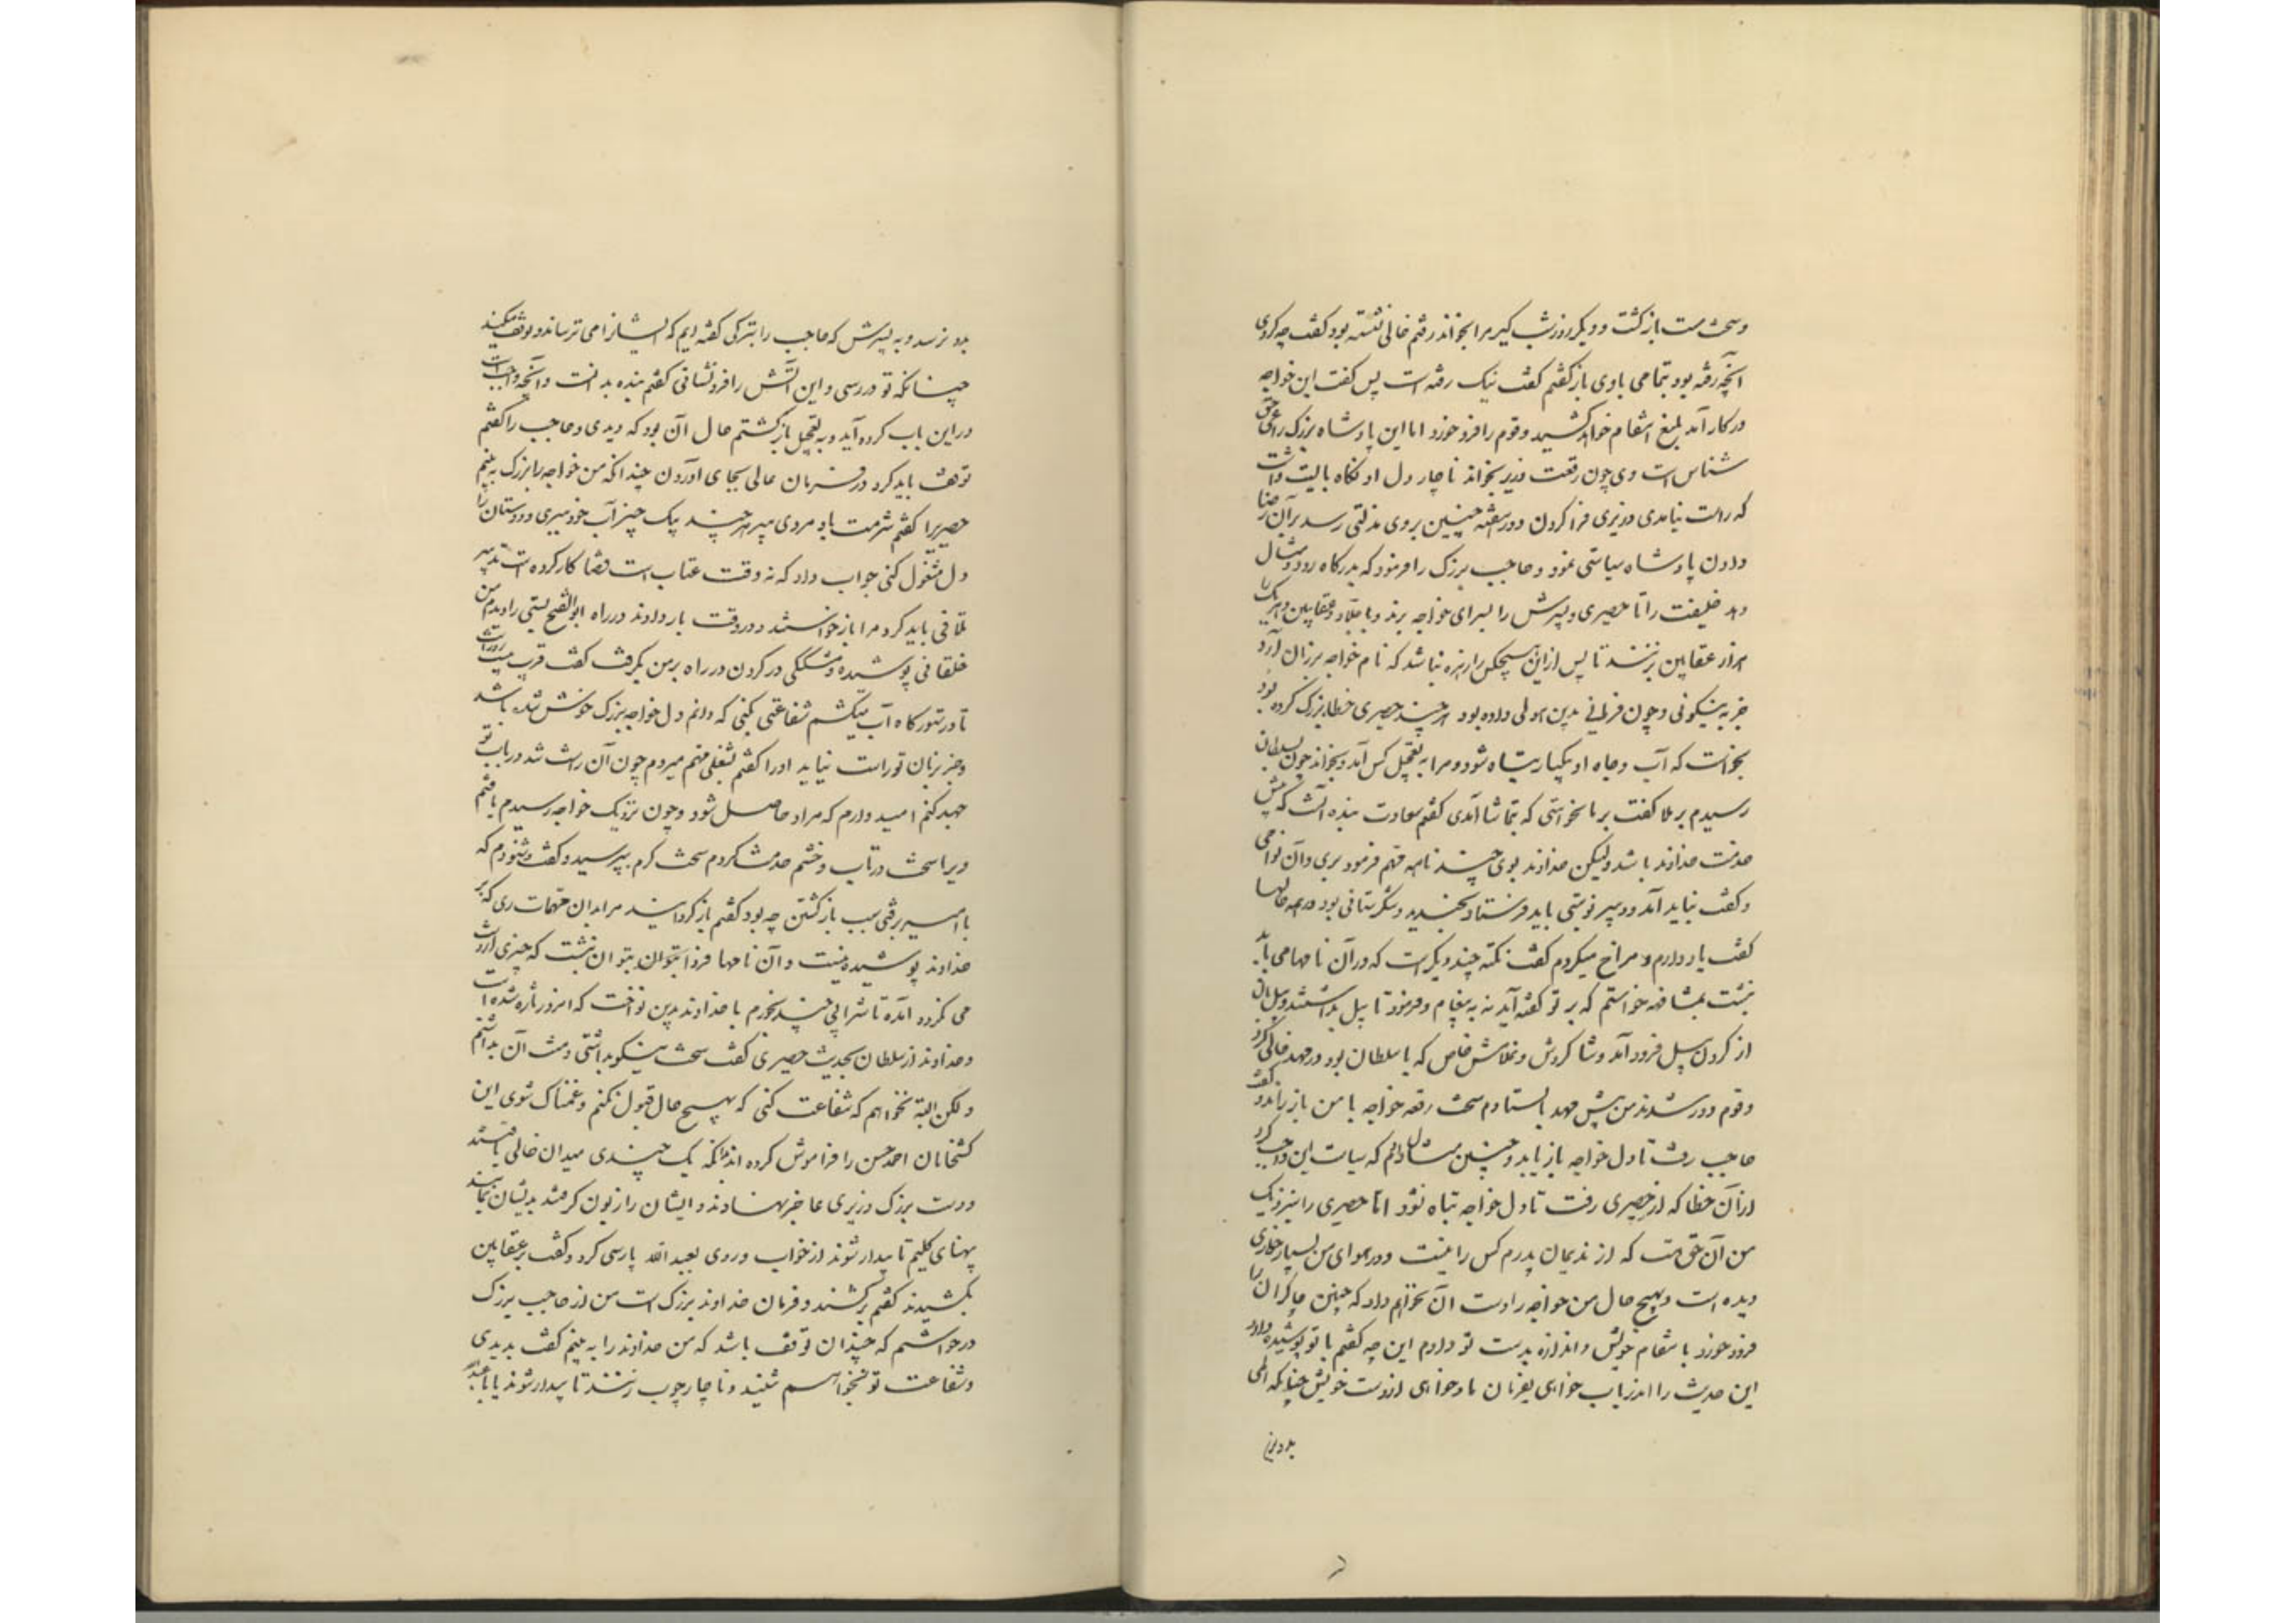 و سخت مست بازگشت و دیگر روز شبگیر مرا بخواند رفتم خالی نشسته بود گفت چه کردی
آنچه رفته بود بتمامی با وی باز گفتم گفت نیک رفته است پس گفت این خواجه
در کار آمد بلیغ انتقام خواهد کشید و قوم را فرو خورد اما این پادشاه بزرگ راعی حق
شناس است وی چون رقعت وزیر بخواند ناچار دل او نگاه بایست داشت
که راست نیامدی وزیری فرا کردن و در هفته چنین بروی مذلتی رسد بر آن رضا
دادن پادشاه سیاستی نمود و حاجب بزرگ را فرمود که بدرگاه رود و مثال
دهد خلیفت را تا حصیری و پسرش را بسرای خواجه برند و با جلاد و عقابین و هر یک را
هزار عقابین بزنند تا پس از این هیچکس را زهره نباشد که نام خواجه بر زبان آرد
جز به نیکوئی و چون فرمانی بدین هولی داده بود هر چند حصیری خطا بزرگ کرده بود
نخواست که آب و جاه او یکبار تباه شود و مرا به تعجیل کس آمد و بخواند چون بسلطان
رسیدم برملا گفت با ما نخواستی که بتماشا آمدی گفتم سعادت بنده آنست که پیش
خدمت خداوند باشد ولیکن خداوند بوی چند نامه مهم فرمود بری و آن نواحی
و گفت نباید آمد و دبیر نوبتی باید فرستاد بخندید و شگرستانی بود در همه حالها
گفت یاد دارم و مزاح میکردم گفت نکته چند دیگرست که در آن نامها می‌باید
نبشت بمشافهه خواستم که بر تو گفته آید نه به پیغام و فرمود تا پیل بداشتند و پیلبان
از گردن پیل فرود آمد و شاگردش و غلامش خاص که با سلطان بود در مهد خالی کرد
و قوم دور شدند من پیش مهد بایستادم سخت رقعه خواجه با من باز راند و گفت
حاجب رفت تا دل خواجه باز یابد و چنین مثال دادم که سیاست این واجب کرد
از آن خطا که از حصیری رفت تا دل خواجه تباه نشود اما حصیری را نزدیک
من آن حق هست که از ندیمان پدرم کس را نیست و در هوای من بسیار خواری
دیده است و بهیچ حال من خواجه را دست آن نخواهم داد که چنین چاکران را
فرو خورد بانتقام خویش و اندازه بدست تو دادم این چه گفتم با تو پوشیده دار
این حدیث را اندر یاب خواهی بفرمان ما و خواهی از دست خویش چنانکه المی
بدو نر
بدو نرسد و به پسرش که حاجب را بترکی گفته‌ایم که ایشانرا می‌ترساند و توقف میکند
چنانکه تو در رسی و این آتش را فرو نشانی گفتم بنده بدانست و آنچه واجب است
در این باب کرده آید و به تعجیل بازگشتم حال آن بود که دیدی و حاجب را گفتم
توقف باید کرد در فرمان عالی بجای آوردن چندانکه من خواجه بزرگ را ببینم
حصیری را گفتم شرمت باد مردی پیر هر چند یک چیز آب خود میبری و دوستان را
دل مشغول کنی جواب داد که نه وقت عتاب است قضا کار کرده است تدبیر
تلافی باید کرد مرا باز خواستند و در وقت بار دادند در راه ابوالفتح بستی را دیدم من
خلقانی پوشیده و مشککی در گردن در راه بر من بگرفت گفت قریب بیست روز است
تا در ستورگاه آب میکشم شفاعتی کنی که دانم دل خواجه بزرگ خوش شده باشد
و جز بزبان تو راست نیاید او را گفتم بشغلی مهم میروم چون آن راست شد در باب تو
جهد کنم امید دارم که مراد حاصل شود و چون نزدیک خواجه رسیدم یافتم
ویرا سخت در تاب و خشم خدمت کردم سخت گرم بپرسید و گفت شنودم که
با امیر برفتی سبب بازگشتن چه بود گفتم باز گردانید مرا بدان مهمات ری که بر
خداوند پوشیده نیست و آن نامها فردا بتوان نبشت که چیزی از دست
می نگردد آمده تا شرابی چند بخورم با خداوند بدین نواخت که امروز تازه شده است
و خداوند از سلطان بحدیث حصیری گفت سخت نیکو بداشتی و منت آن بداشتم
و لکن البته نخواهم که شفاعت کنی که بهیچ حال قبول نکنم و غمناک شوی این
کشخانان احمد حسن را فراموش کرده‌اند بدانکه یک چندی میدان خالی یافتند
و دست بزرگ وزیری عاجز نهادند و ایشان را زبون گرفتند بدیشان نمایند
پهنای گلیم تا بیدار شوند از خواب و روی بعبد الله پارسی کرد و گفت بر عقابین
نکشیدند گفتم برکشند و فرمان خداوند بزرگ است من از حاجب بزرگ
درخواستم که چندان توقف باشد که من خداوند را به بینم گفت بدیدی
و شفاعت تو نخواهم شنید و ناچار چوب زنند تا بیدار شوند یا با عبد الله